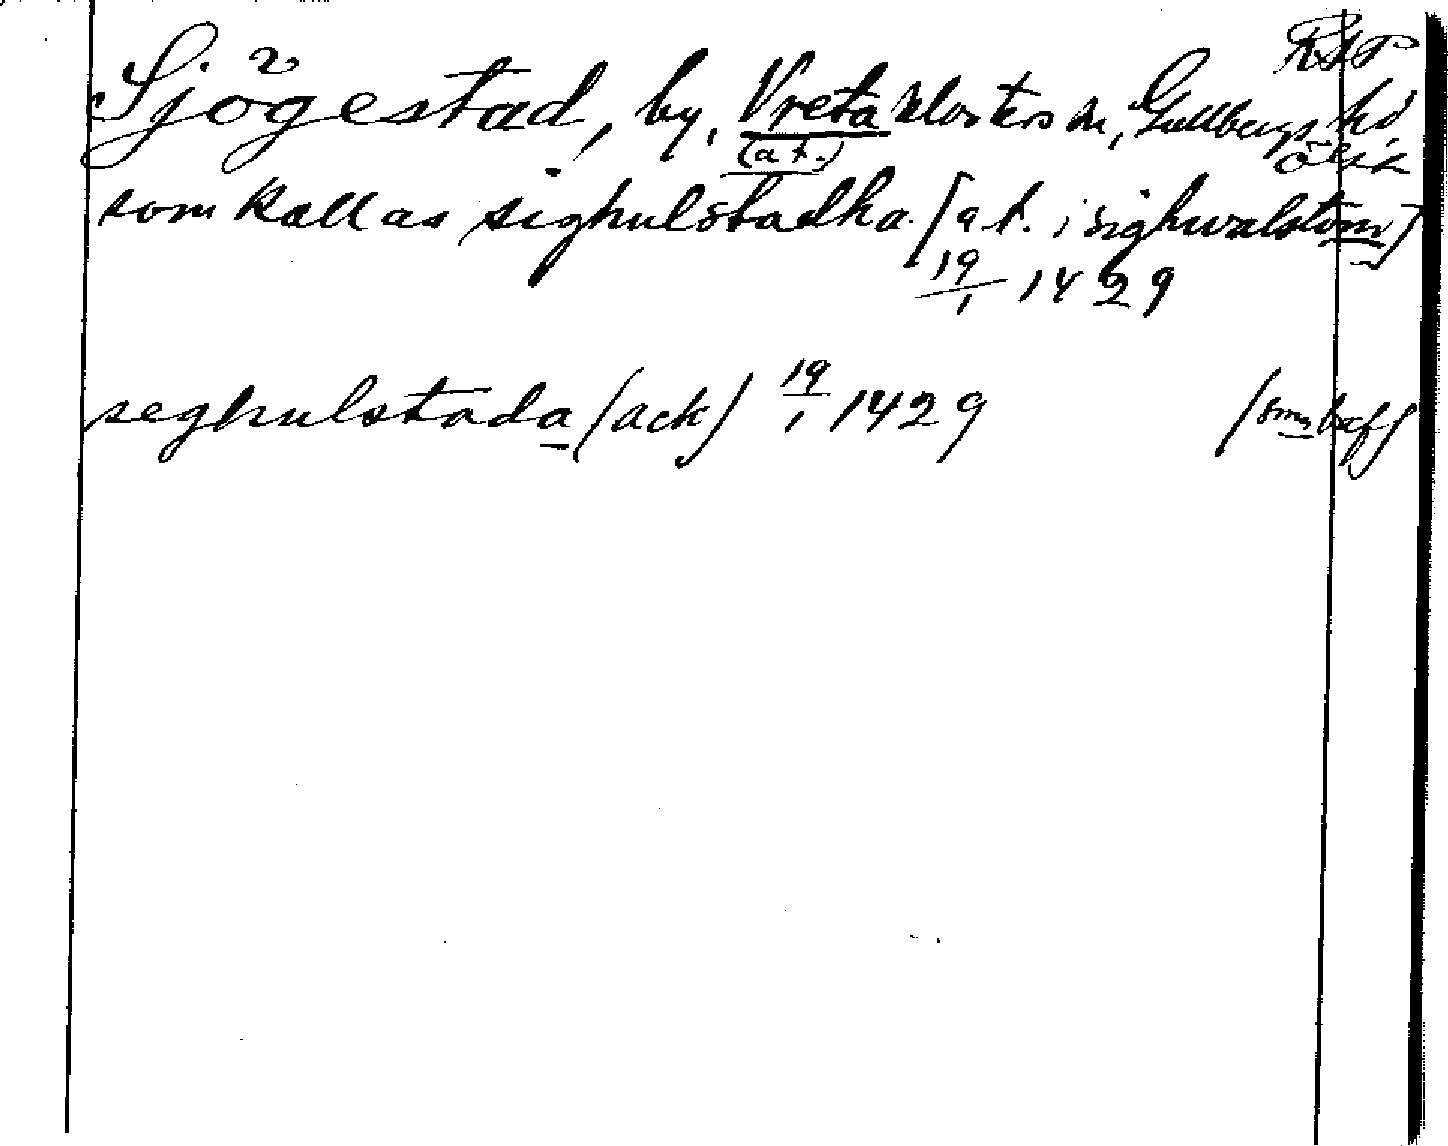 Sjögestad, by, Vreta klosters sn, Gullbergs hd
(a t.)
som kallas sighulstadha [a t. i sighwalstom]
19/1 1429
seghulstada (ack) 19/1 1429